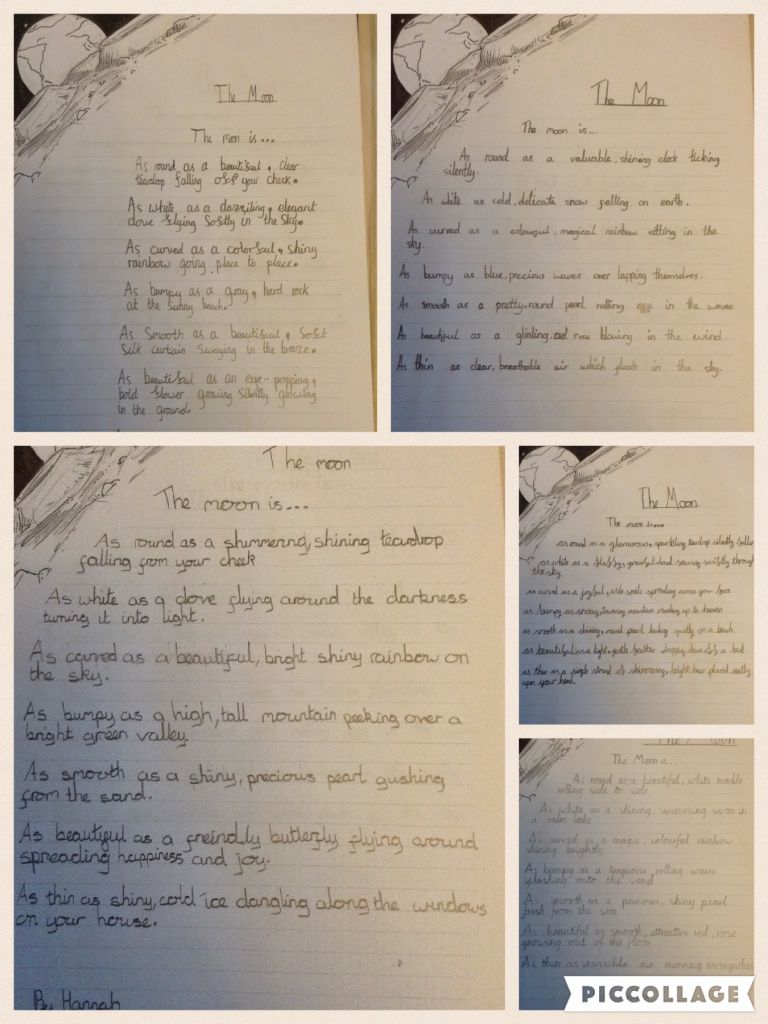 The Moon
The moon is...
As round as a beautiful, clear
teardrop falling off your cheek.
As white as a dazziling, elegant
dove flying softly in the sky.
As curved as a colorful, shiny
rainbow going place to place.
As bumpy as a gray, hard rock
at the sunny beach.
As smooth as a beautiful, soft
silk curtain swaying in the breeze.
As beautiful as an eye-popping,
bold flower growing silently growing
in the ground.
The Moon
The moon is...
As round as a valuable, shining clock ticking
silently.
As white as cold, delicate snow falling on earth.
As curved as a colourful, magical rainbow sitting in the
sky.
As bumpy as blue, precious waves over lapping themselves.
As smooth as a pretty, round pearl rolling off in the waves.
As beautiful as a glinting, red rose blowing in the wind.
As thin as clear, breathable air which floats in the sky.
The moon
The moon is...
As round as a shimmering, shining teardrop
falling from your cheek
As white as a dove flying around the darkness
turning it into light.
As curved as a beautiful, bright shiny rainbow on
the sky.
As bumpy as a high, tall mountain peeking over a
bright green valley.
As smooth as a shiny, precious pearl gushing
from the sand.
As beautiful as a freindly butterfly flying around
spreading happiness and joy.
As thin as shiny, cold ice dangling along the windows
on your house.
By Hannah
The Moon
The moon is...
as round as a glamorous, sparkling teardrop silently
as white as a fluffy, graceful cloud soaring swiftly through
the sky
as curved as a joyful, wide smile spreading across your face
as bumpy as snowy, mountain reaching up to heaven
as smooth as a shining, round pearl hiding quietly on a beach
as beautiful as a light, gentle feather dropping a bird
as thin as a single strand of shimmering, bright hair placed neatly
upon your head.
The Moon
The Moon is...
As round as a beautiful, white marble
rolling side to side
As white as a shining, swimming swan in
a calm lake
As curved as a magic, colourful rainbow
shining brightly
As bumpy as a turquoise, rolling wave
splashing onto the sand
As smooth as a precious, shiny pearl
fresh from the sea
As beautiful as smooth, attractive red, rose
growing out of the floor
As thin as invisible air moving everywhere
PICCOLLAGE